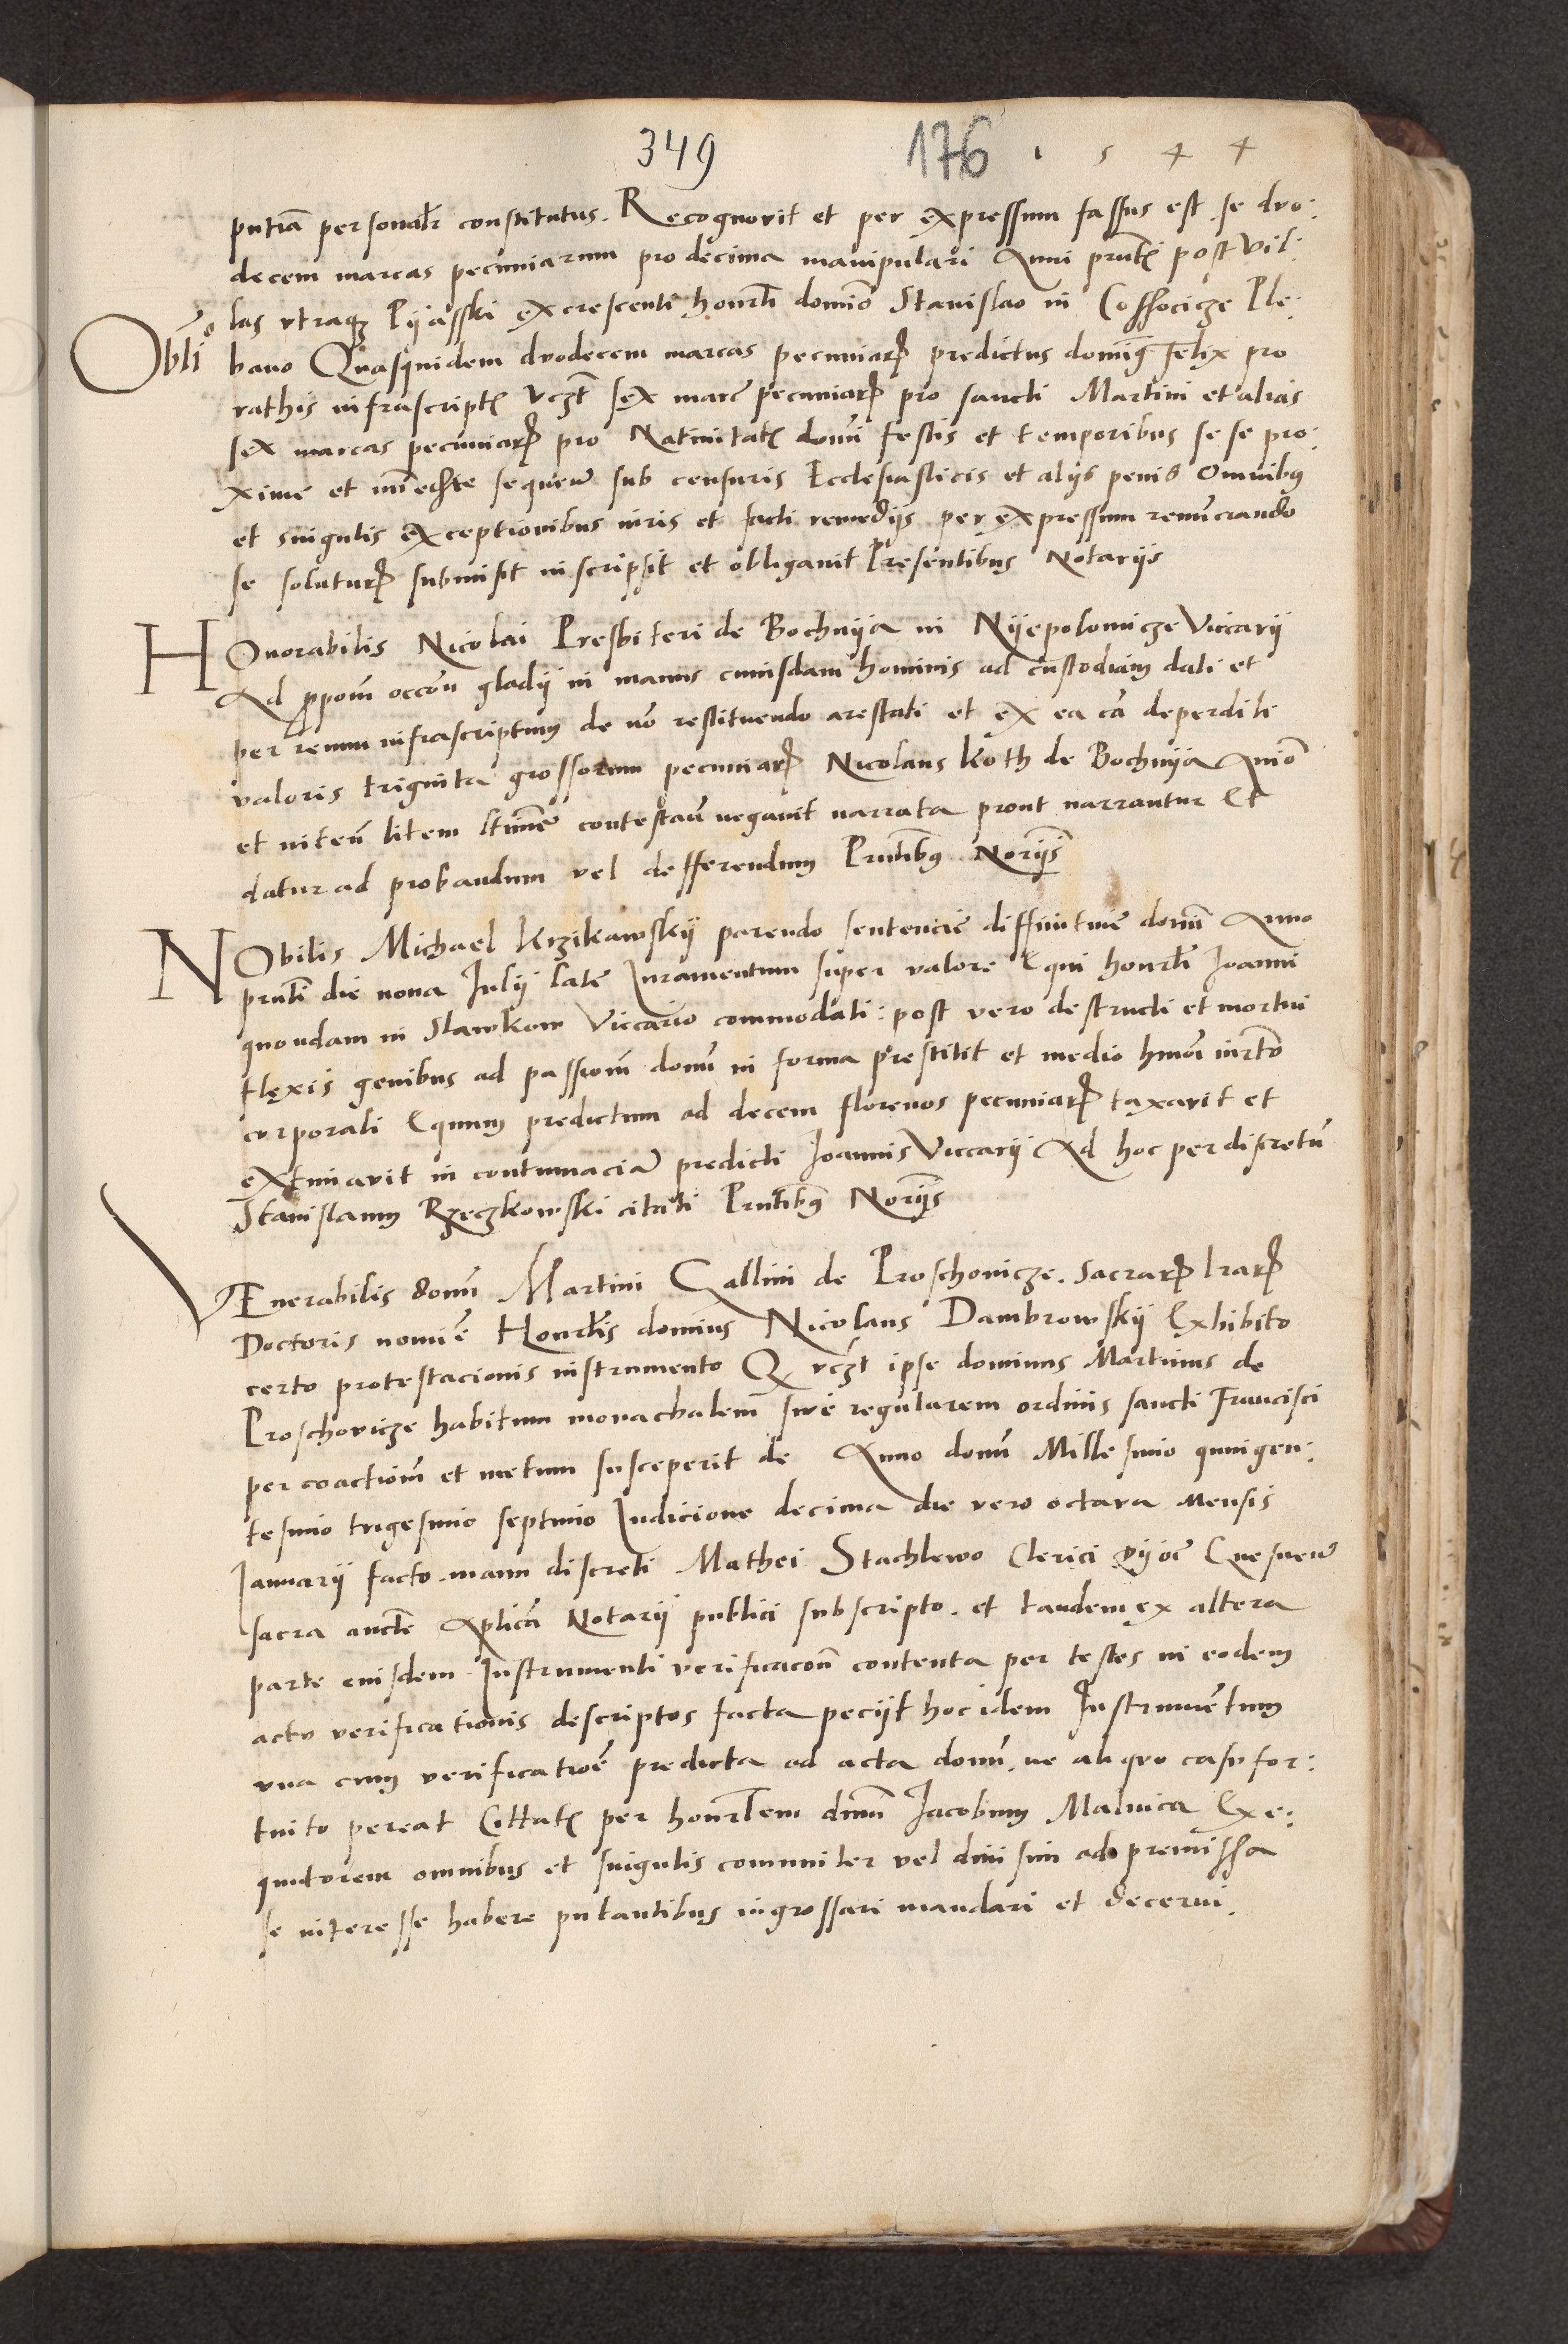 349 176 1 5 4 4
pntiā personalr constitutus. Recognovit et per expressum fassus est se dvo:
decem marcas pecuniarum pro decima manipulari Anni pnti post Vil:
las vtrasqȝ Pijasski excrescenti honrli domino Stanislao in Cossocicze Ple:
Obliō
bano Quasquidem dvodecem marcas pecuniarꝝ predictus dominꝯ Felix pro
rathis infrascriptꝭ vczt sex marc pecuniarꝝ pro sancti Martini et alias
sex marcas pecuniarꝝ pro Natiuitatꝭ domi festis et temporibus se se pro:
xime et immediate sequeñ sub censuris Ecclesiasticis et alijs penis Omnibus
et singulis exceptionibus iuris et facti remedijs per expressum renunciando
se soluturꝝ submisit inscripsit et obligauit Presentibus Notarijs
HOnorabilis Nicolai Presbiteri de Bochnija in Nijepolomicze Viccarij
Ad propom occōn gladij in manus cuiusdam hominis ad custodiam dati et
per reum infrascriptum de nō restituendo arestati et ex ea cā deperditi
valoris triginta grossorum pecuniarꝝ Nicolaus Koth de Bochnija Aniō
et inteñ litem ltimē contestañ negauit narrata prout narrantur Et
datur ad probandum vel defferendum Pntibus Norijs
NObilis Michael Krzikawskij parendo sentencie diffinitiuē domī Anno
pnti die nona Julij late Juramentum super valore Equi honrli Joanni
quondam in Slawkow Viccario commodati: post vero destructi et mortui
flexis genibus ad passionē domī in forma prestitit et medio hmoi iurtō
corporali Equum predictum ad decem florenos pecuniarꝝ taxavit et
extimavit in contumaciā predicti Joannis Viccarij Ad hoc per discretū
Stanislaum Rzeczkowski citati Pntibus Norijs
VEnerabilis domī Martini Gallini de Proschouicze. Sacrarꝝ lrarꝝ
Doctoris nomiē Honrlis dominus Nicolaus Dambrowskij Exhibito
certo protestacionis instrumento Qꝫ vczt ipse dominus Martinus de
Proschovicze habitum monachalem siue regularem ordinis sancti Francisci
per coactionē et metum susceperit de Anno domī Millesimo quingen:
tesimo trigesimo septimo Indicione decima die vero octava Mensis
Januarij facto. manu discreti Mathei Stachlewo Clerici dijoc Gnesneñ
sacra aucte Aplicā Notarij publici subscripto. et tandem ex altera
parte eiusdem Instrumenti verificacōn contenta per testes in eodem
actv verificationis descriptos facta peciit hoc idem Instrumentum
vna cum verificatiōe predicta ad acta domī. ne aliqvo casv for:
tuito pereat Cittatꝭ per honrlem dnm Jacobum Malnica Exe:
quutorem omnibus et singulis comuniter vel diuisim ad premissa
se interesse habere putantibus ingrossari mandari et decerni.